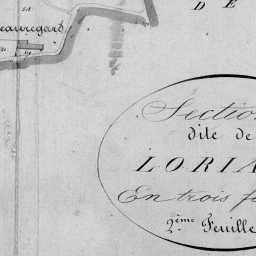 D E
eauregard
Section
dite de
LORIA
En trois f
2ème Feuille